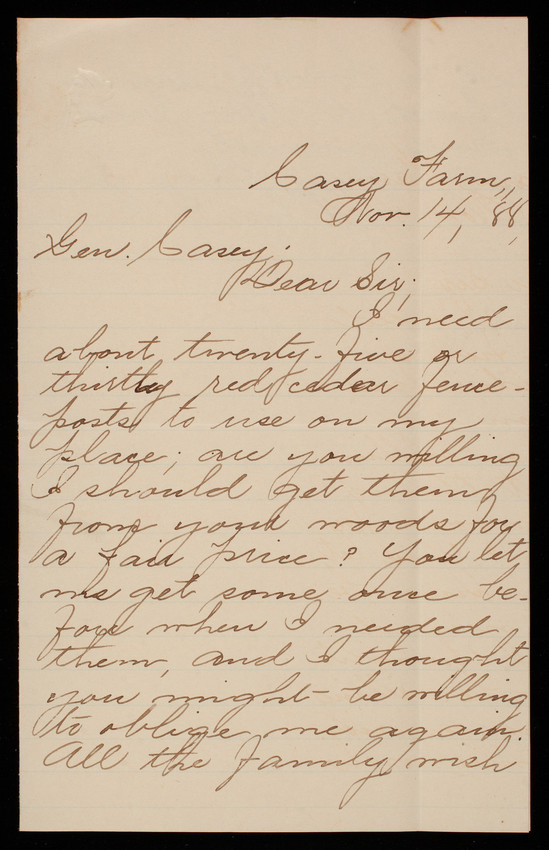 Casey Farm,
Nov. 14, 88,
Gen. Casey.
Dear Sir;
I need
about twenty-five or
thirty red cedar fence-
posts to use on my
place; are you willing
I should get them
from your woods for
a fair price? You let
me get some once be-
fore when I needed
them, and I thought
you might be willing
to oblige me again.
All the family wish